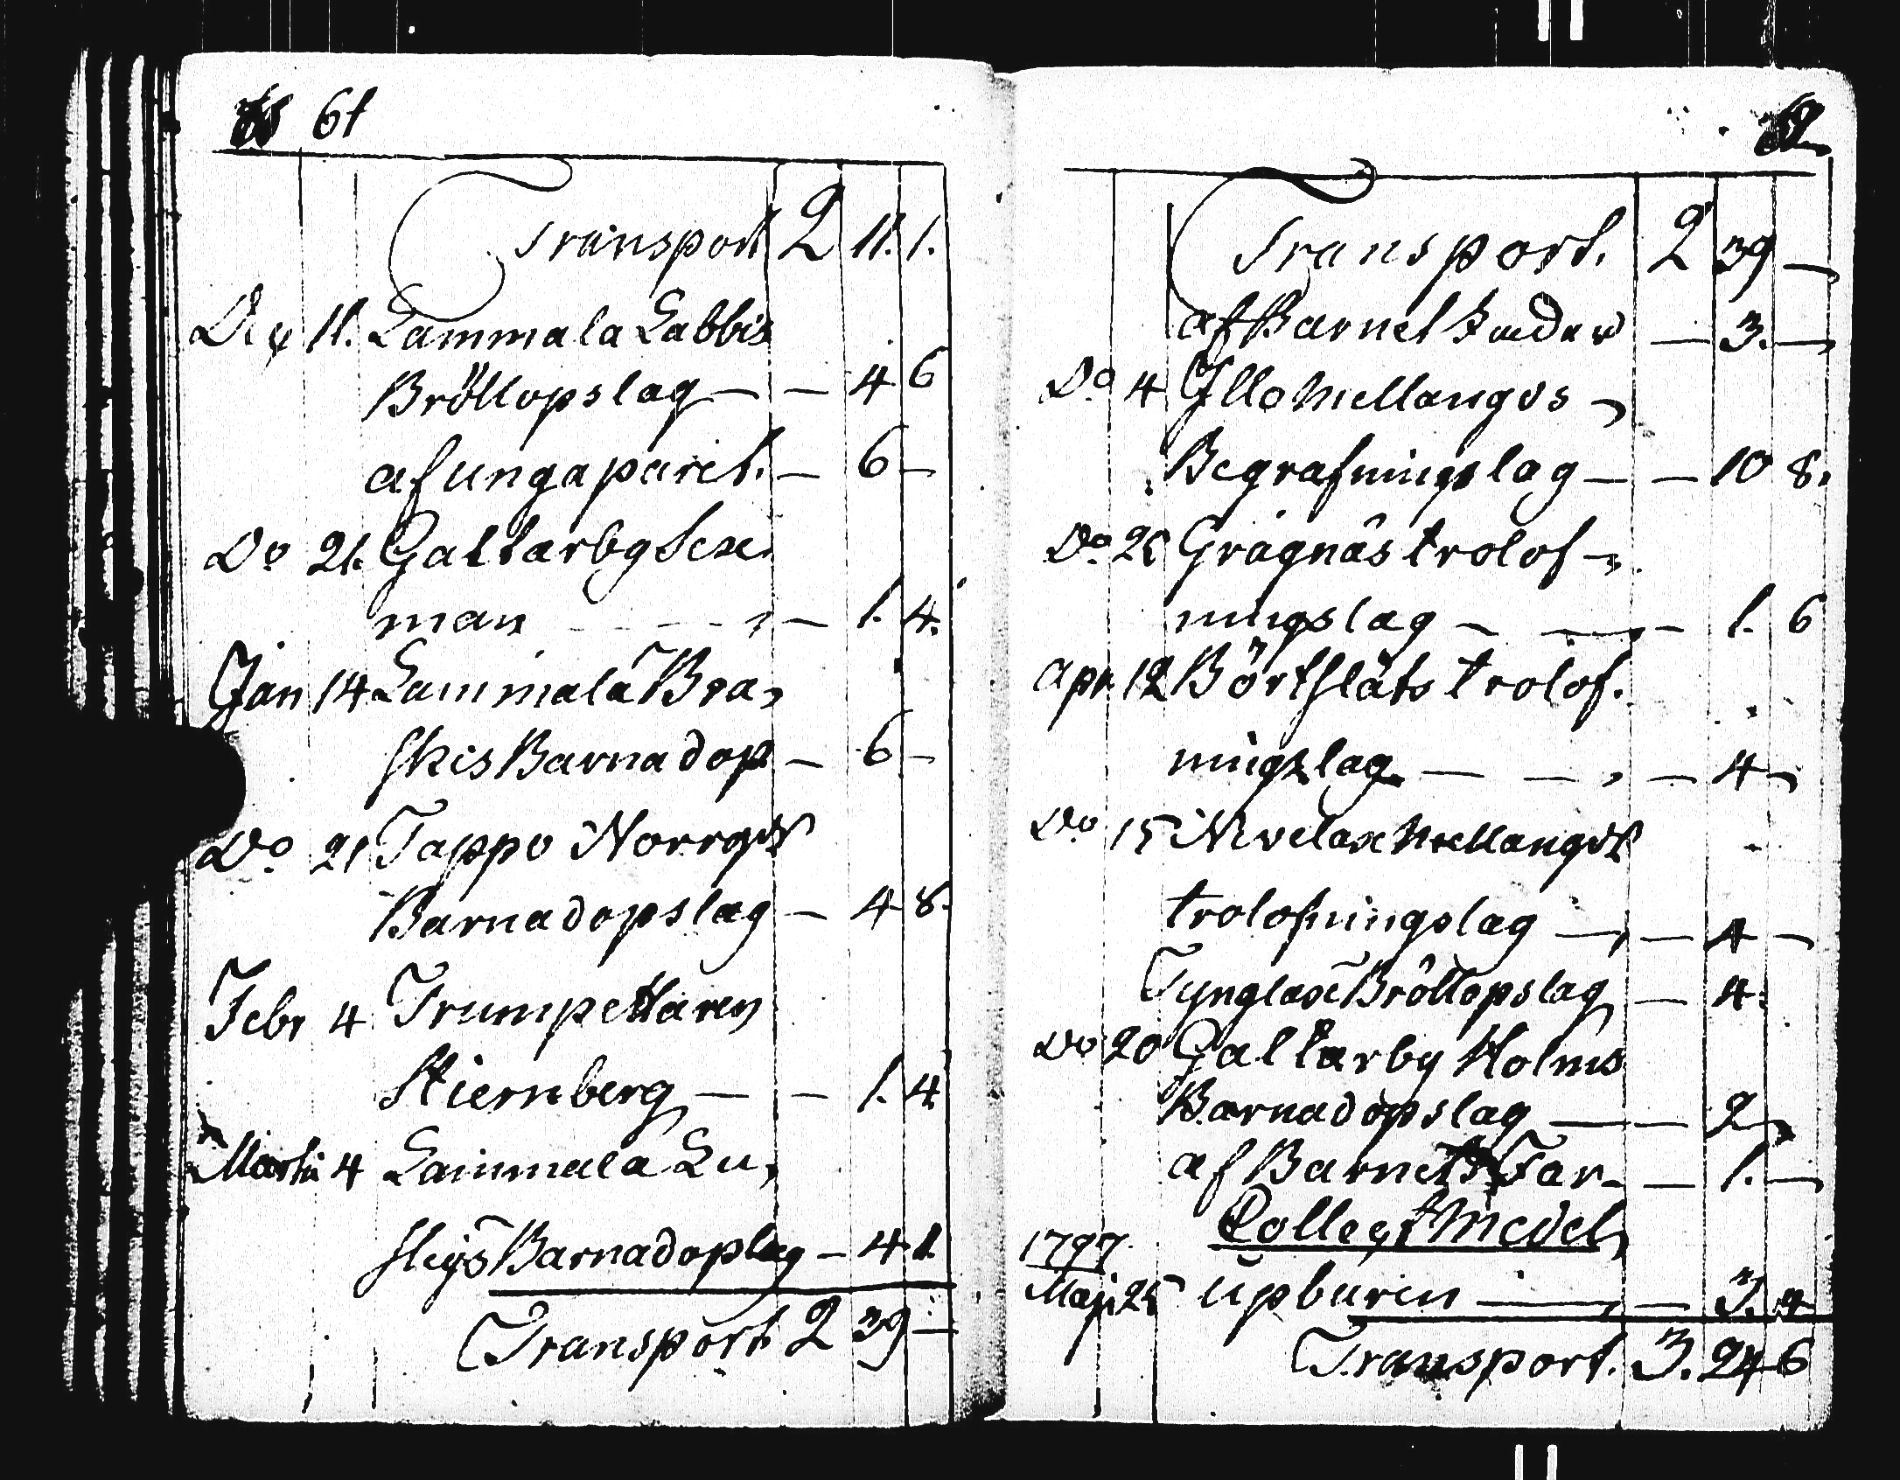 61
Transport 2 11. 1.
Dec 11. Lammala Labbis
Bröllopslag — — 4 6
af unga paret. — 6 —
Do 21. Galtarby Sex,
man — — 1. 4.
Jan 14 Lammala Bra,
skis Barnadop — 6 —
Do. 21 Tappo Norrgds
Barnadopslag — 4 8.
Febr 4 Trumpettaren
Stiernberg — — 1. 4
Martii 4 Lammala Lu,
Barnadoplag — 4 1
Transport 2 39 —
62
Transport. 2 39 —
af Barnet Fader — 3. —
Do 4 Illo Mellangds
Begrafningslag — — 10 8.
Do. 25 Grågnäs trolof
ningslag — — — 1. 6
Apr. 12 Börtslåts trolof.
ningslag — — — 4 —
Do. 15 Nivelax Mellangds
trolofningslag — — 4 —
Tynglax Bröllopslag — 4.
Do 20 Galtarby Holms
Barnadopslag — — 2 —
af Barnets Far — — 1. —
Collect Medel
1797
Maji 25 upburin — — 3. 4
Transport. 3. 24 6